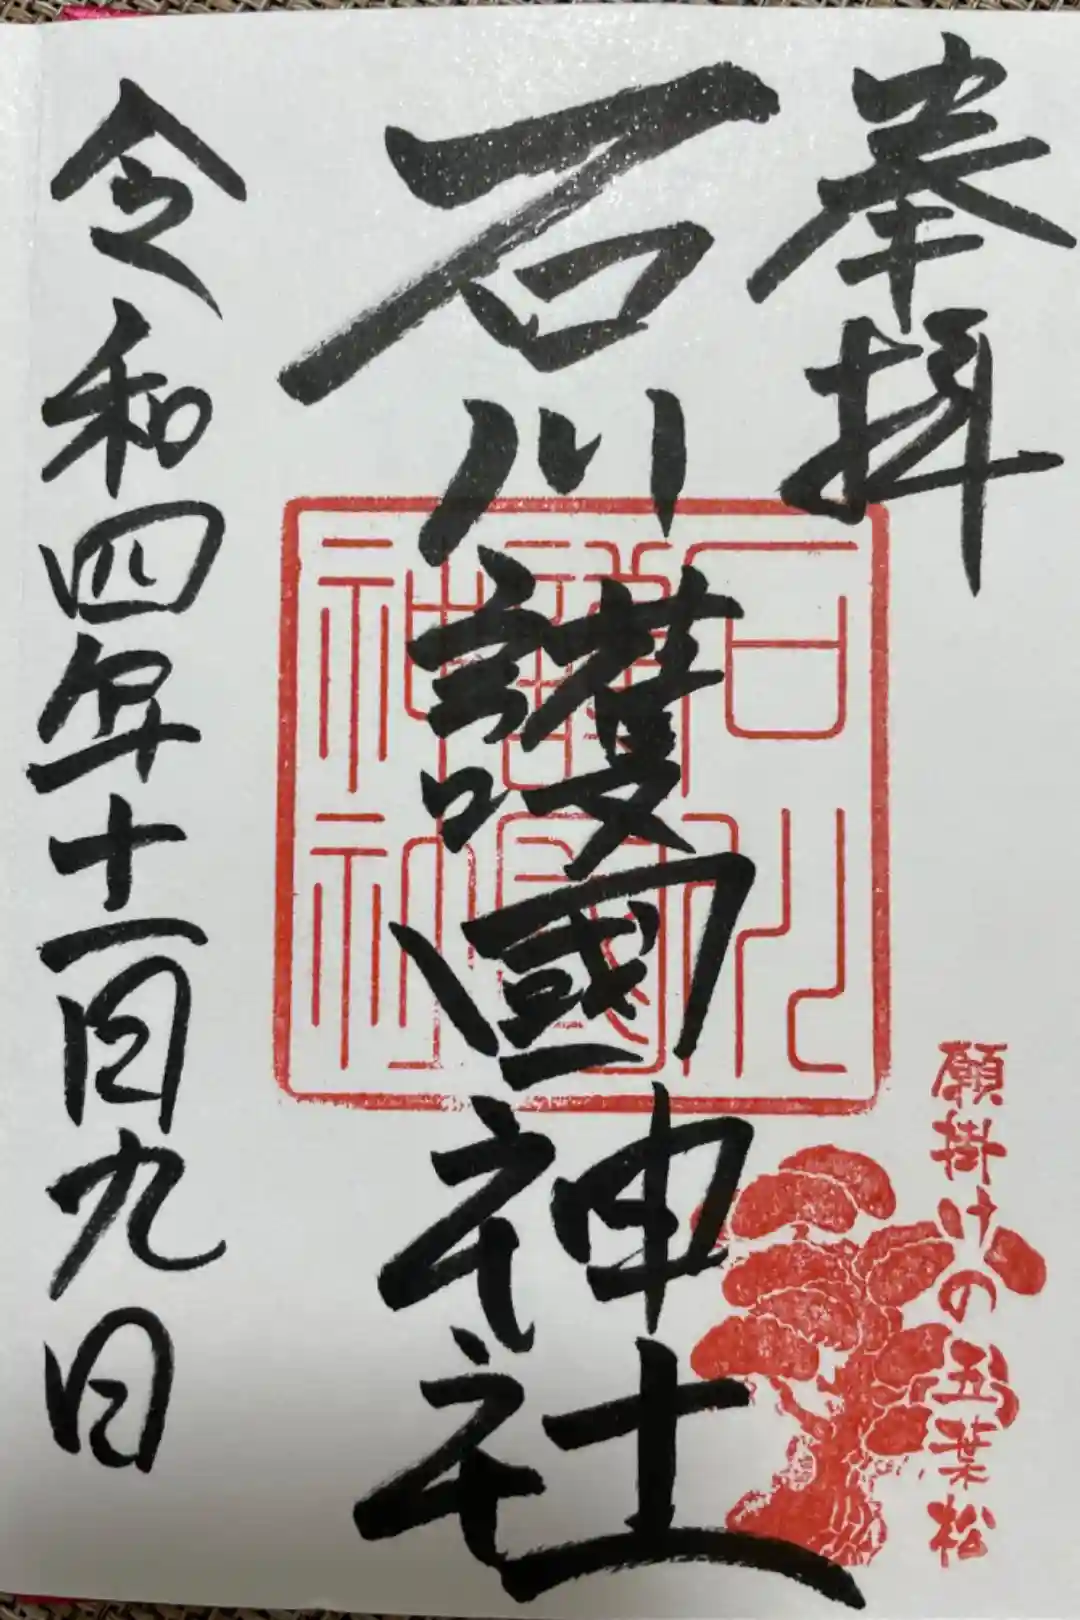 奉拝
石川護國神社
石川
護國
神社
願掛けの五葉松
令和四年十一月九日